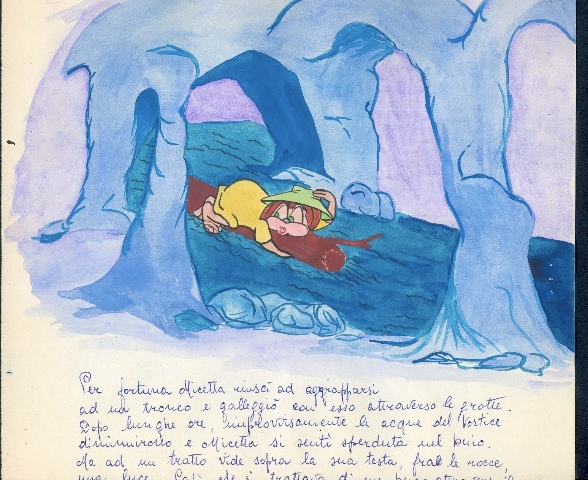 Per fortuna Micetta riuscì ad aggrapparsi
ad un tronco e galleggiò con esso attraverso le grotte.
Dopo lunghe ore, improvvisamente le acque del Vortice
diminuirono e Micetta si sentì sperduta nel buio.
Ma ad un tratto vide sopra la sua testa, fra le rocce,
una luce.